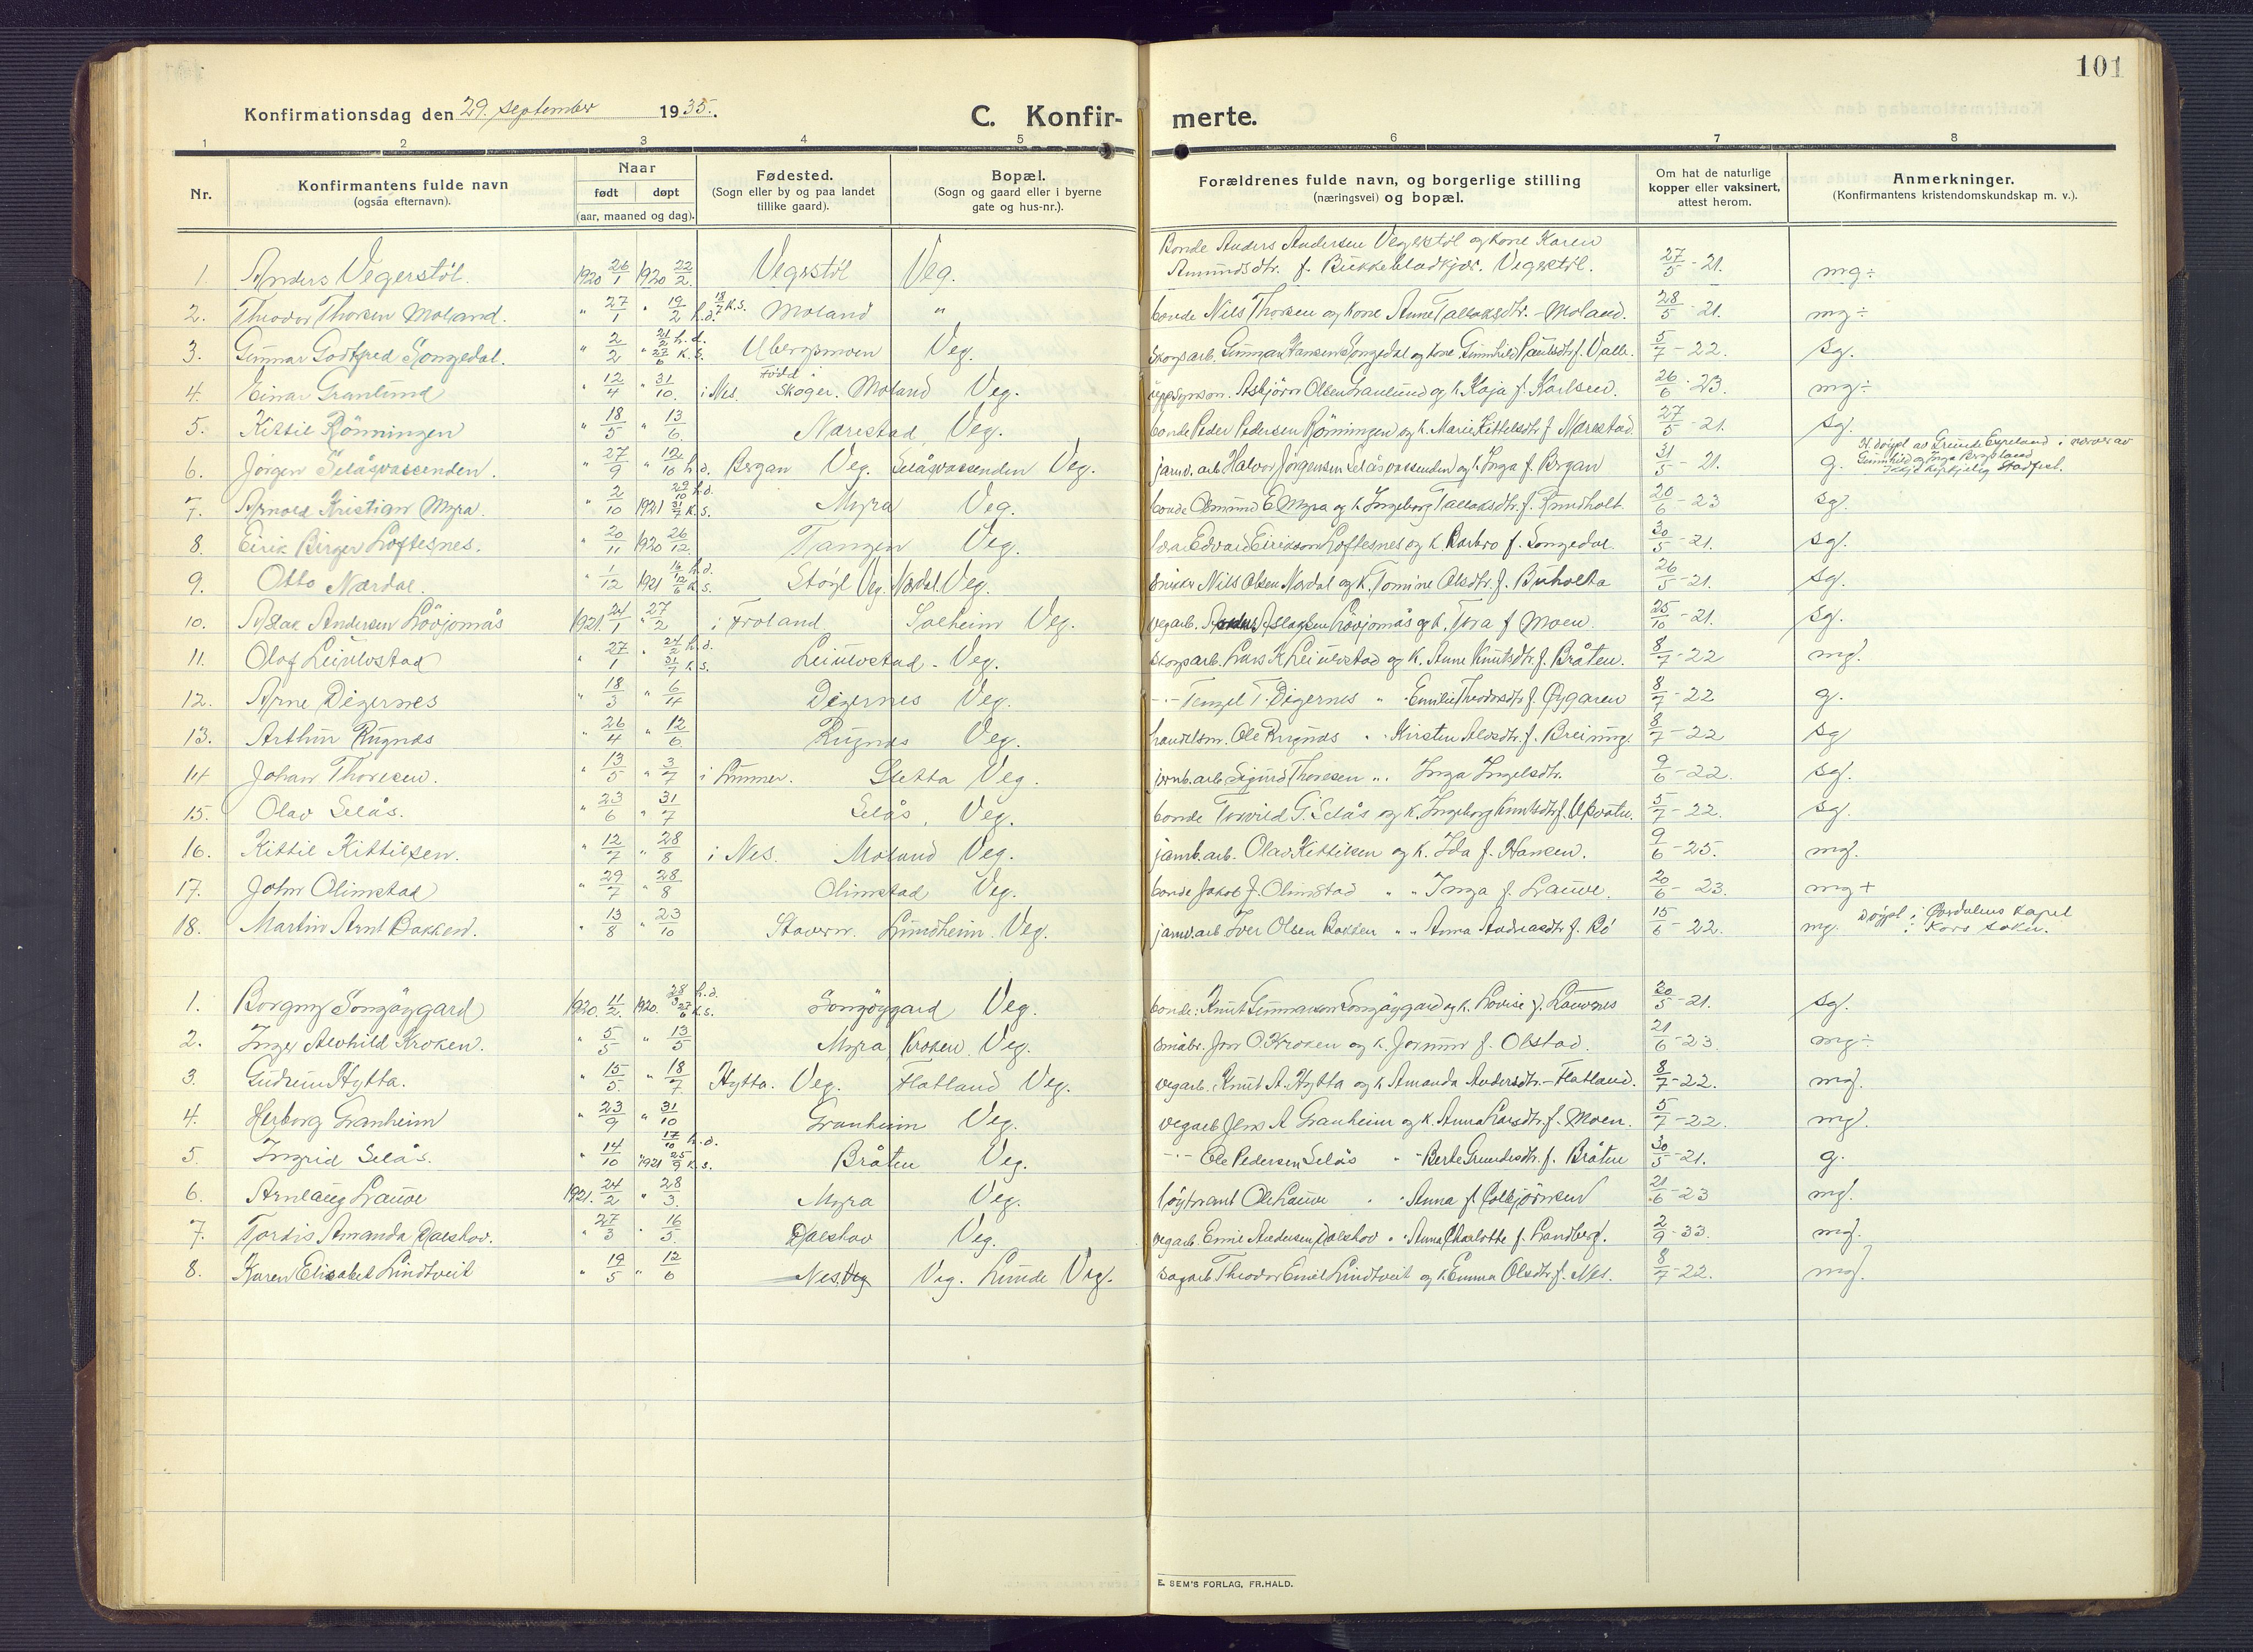 101
Konfirmationsdag den 29. september 1935.
C. Konfir-merte.
1 2 3 4 5 6 7 8
Nr.
Konfirmantens fulde navn
(ogsaa efternavn).
Naar
født døpt
(aar, maaned og dag).
Fødested.
(Sogn eller by og paa landet
tillike gaard).
Bopæl.
(Sogn og gaard eller i byerne
gate og hus-nr.).
Forældrenes fulde navn, og borgerlige stilling
(næringsvei) og bopæl.
Om hat de naturlige
kopper eller vaksinert,
attest herom.
Anmerkninger.
(Konfirmantens kristendomskundskap m. v.).
Bonde Anders Andersen Vegerstøl og kone Karen
1. Anders Vegerstøl. 1920 26/1 1920 22/2. Vegerstøl Veg. Amundsdtr. f. Bukkebladkjær. Vegerstøl. 27/5 - 21. mg÷
2. Theodor Thorsen Moland. " 27/1 " 19/2 h.d. 18/7 k.s. Moland " bonde Nils Thorsen og kone Anne Tallaksdtr. - Moland. 28/5 - 21. mg÷
3. Gunnar Godtfred Songedal. " 2/2 " 21/2 h.d. 27/6 k.s. Ubergsmoen Veg. skogsarb. Gunnar Hansen Songedal og kone Gunnhild f. Valle. 5/7 - 22. sg.
4. Einar Granlund " 12/4 " 31/10. i Nes. Født i Skoger. Moland Veg. oppsynsm. Asbjørn Olsen Granlund og k. Kaja f. Karlsen. 26/6 - 23. mg÷
5. Kittil Rönningen " 18/5 " 13/6. Narestad, Veg. bonde Peder Pedersen Rönningen og k. Marie Kittelsdtr f Narestad. 27/5 - 21. sg.
6. Jørgen Selåsvassenden. " 27/9 " 12/10 h.d. Bergan Veg. Selåsvassenden Veg. jarnv. arb Halvor Jørgensen Selåsvassenden og k. Inga f. Bergan 31/5 - 21. g. H. døypt av i nærver av
Gunnhild og Inga Bergsland
Ikkje kyrkjeleg Stadfest.
7. Arnold Kristian Myra. " 2/10 1921 29/10 h.d. 31/7 k.s. Myra Veg. bonde Osmund E Myra og k Ingeborg Tallaksdtr. f. 20/6 - 23 sg.
8. Eirik Birger Loftesnes. " 20/11 1920 26/12. Tangen Veg. lærar Edvard Eirikson Loftesnes og k. Barbro f. Songedal. 30/5 - 21. sg.
9. Otto Nærdal. " 1/12 1921 h.d. 12/6 k.s. Støyl Veg. Nærdal. Veg. Nils Olsen Nærdal og k. Tomine Olsdtr. f. Buholta 26/5 - 21. sg.
10. Aslak Andersen Lövjomås 1921. 24/1 " 27/2 i Froland. Solheim Veg. vegarb. Aslaksen Lövjomås og k. Tora f Moen. 25/10 - 21. sg.
11. Olaf Leiulvstad " 27/1 " 24/2 h.d. 31/7 k.s. Leiulvstad - Veg. skogsarb. Lars K Leiulvstad og k. Anne Knutsdtr. f. Bråten. 8/7 - 22 mg.
12. Arne Digernes " 18/3 " 6/4 Digernes Veg. -"- Tengel T. Digernes " Emilie Theodorsdtr f. Øygaren 8/7 - 22 g.
13. Arthur Rugnås " 26/4 " 12/6. Rugnås Veg. handelsm. Ole Rugnås " " Kirsten f. Breiung. 8/7 - 22 sg
14 Johan Thoresen. " 13/5 " 3/7 i Lunner. Sletta Veg. jernb. arb Sigurd Thoresen " . Inga Ingelsdtr. 9/6 - 22. sg.
15. Olav Selås. " 23/6 " 31/7 Selås, Veg. bonde Torvild G. Selås og k. Ingeborg Knutsdtr f. 5/7 - 22. sg.
16. Kittil Kittilsen. " 12/7 " 28/8 i Nes. Moland Veg. jarnb. arb. Olav Kittilsen og k. Ida f. Hansen. 9/6 - 25. mg.
17. John Olimstad " 29/7 " 28/8 Olimstad Veg. bonde Jakob J. Olimstad " " Inga f. Lauve. 20/6 - 23. mg +
18. Martin Arnt Bakken. " 13/8 " 23/10 Stavern. Lundheim. Veg. jarnv. arb Iver Olsen Bakken " " Anna Andreasdtr f. Rö 15/6 - 22. mg. døypt i kapel
i Kors sokn.
1. Borgny Songöygard 1920. 11/2. 1920. 28/3 h.d. 27/6 k.s. Songöygard Veg. bonde: Knut Gunnarson Songöygard og k. Lovise f. Lauvnes 20/5 - 21. sg.
2. Inger Alvhild Kroken. " 5/5 " 13/5 Myra Kroken. Veg. småbr. Jon O. Kroken og k. Jorunn f. Olstad. 21/6 - 23. mg÷
3. Gudrun Hytta. " 15/5 " 18/7 Hytta. Veg. Flatland Veg. vegarb. Knut A. Hytta og k Amanda Andersdtr. - Flatland. 8/7 - 22. mg.
4. Herborg Granheim " 23/9 " 31/10 Granheim Veg. vegarb Jens A Granheim og k. Anna Larsdtr. f. Moen. 5/7 - 22. mg.
5. Ingrid Selås. " 14/10 " 1921 17/10 h.d. 25/9 k.s. Bråten Veg. -"- Ole Pedersen Selås " " Berte f. Bråten 30/5 - 21. g.
6. Arnlaug Lauve 1921. 24/2 " 28/3. Myra Veg. löytnant Ole Lauve " " Anna f. 21/6 - 23 mg.
7. Tordis Amanda Dalskov. " 27/3 " 16/5. Dalskov Veg. vegarb. Emil Andersen Dalskov " " Anna Charlotte f. Landberg. 2/9 - 33. mg.
8. Karen Elisabet Lindtveit " 19/5 " 12/6 Nes. Veg Veg. Lunde Veg. sagarb Theodor Emil Lindtveit og k. Emma Olsdtr. f. Nes. 8/7 - 22. mg.
E. SEM'S FORLAG, FR.HALD.